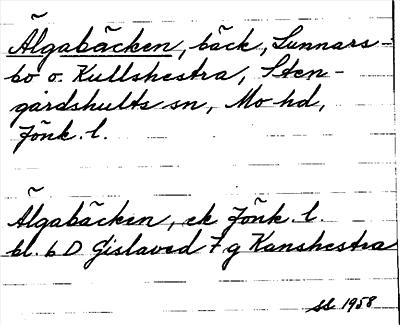 Älgabäcken, bäck, Sunnars-
bo o. Kullshestra, Sten-
gårdshults sn, Mo hd,
Jönk. l.
Älgabäcken, ek Jönk. l.
bl. 6 D Gislaved 7 g Kanshestra
SS 1958